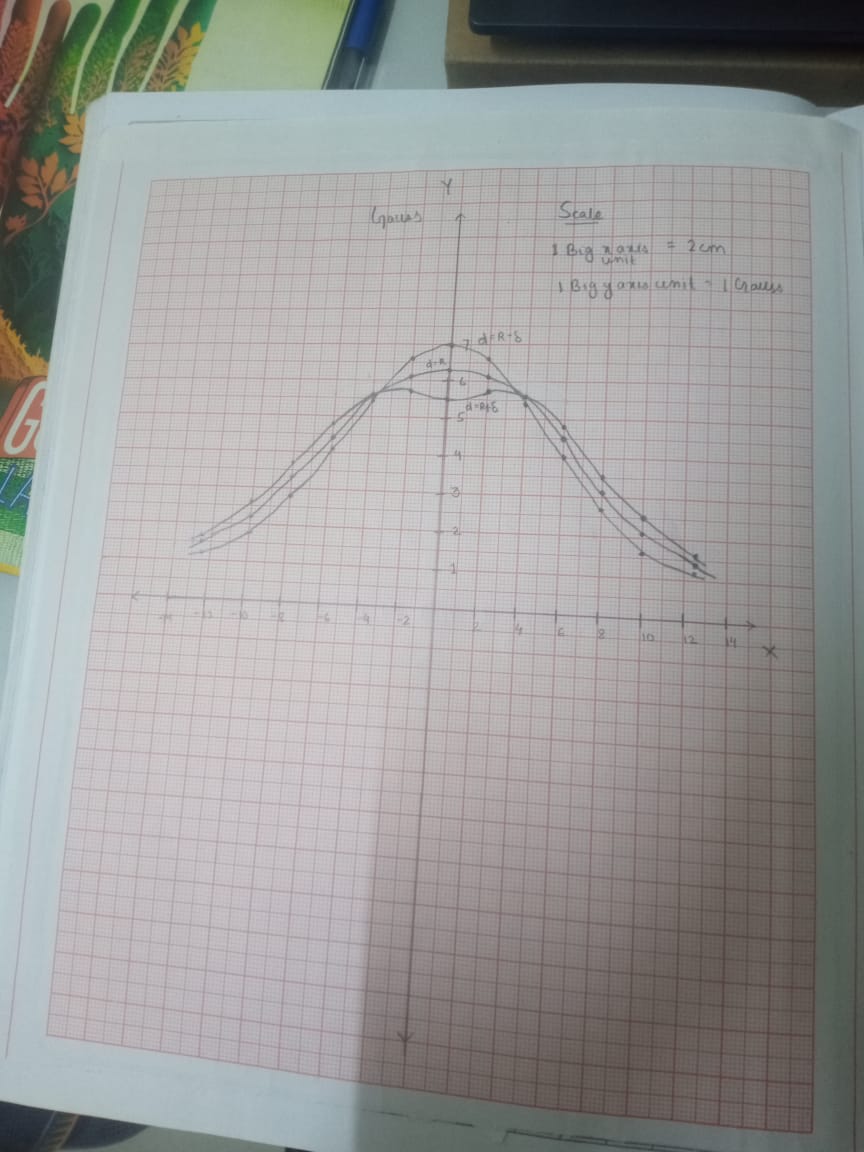 Y
Gauss
Scale
1 Big x axis = 2cm
unit
1 Big y axis unit = 1 Gauss
7 d=R-δ
d=R
6
d=R+δ
5
4
3
2
1
-10 -8 -6 -4 -2 2 4 6 8 10 12 14
X